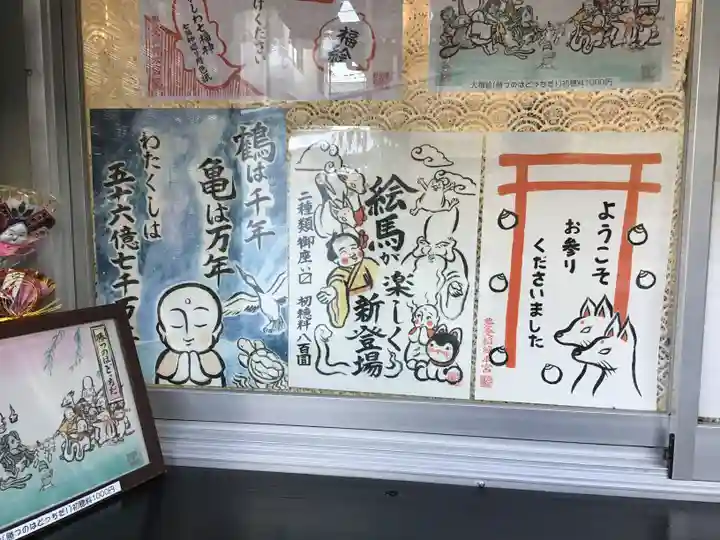 けください
福絵
大福絵(勝つのはどっちだ!)初穂料1000円
鶴は千年
亀は万年
わたくしは
五十六億七千万
絵馬が楽しく
新登場
二種類御座い〼
初穂料八百圓
ようこそ
お参り
くださいました
勝つのはどっちだ
(勝つのはどっちだ!)初穂料1000円